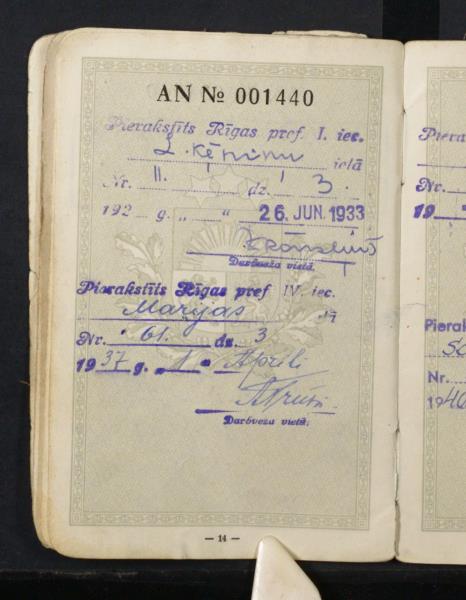 AN № 001440
Pierakstīts Rīgas pref. I. iec.
L. Ķēniņu ielā
Nr. 11. dz. 3.
192 g. „ “ 26. JUN. 1933
Darbveža vietā.
Pierakstīts Rīgas pref IV. iec.
Marijas
Nr. 61. dz. 3
1937 g. „1“ Aprīlī
Darbveža vietā.
— 14 —
Piera
Nr.
19
Pieral
Nr.
1940